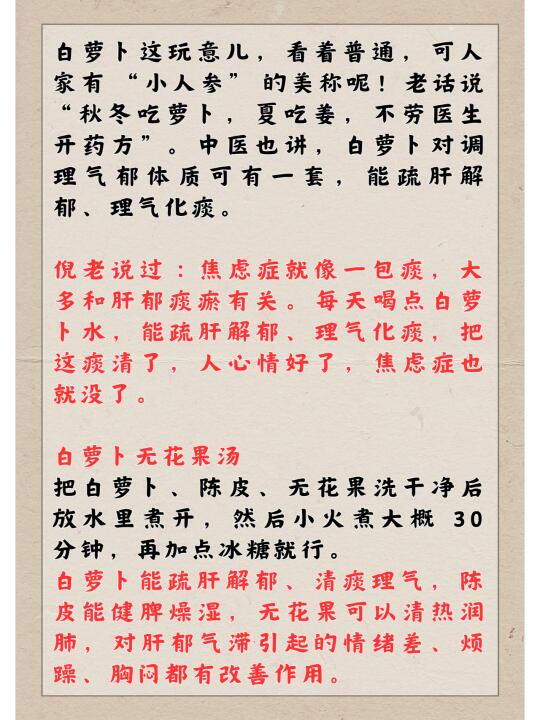 白萝卜这玩意儿，看着普通，可人
家有“小人参”的美称呢！老话说
“秋冬吃萝卜，夏吃姜，不劳医生
开药方”。中医也讲，白萝卜对调
理气郁体质可有一套，能疏肝解
郁、理气化痰。
倪老说过：焦虑症就像一包痰，大
多和肝郁痰瘀有关。每天喝点白萝
卜水，能疏肝解郁、理气化痰，把
这痰清了，人心情好了，焦虑症也
就没了。
白萝卜无花果汤
把白萝卜、陈皮、无花果洗干净后
放水里煮开，然后小火煮大概 30
分钟，再加点冰糖就行。
白萝卜能疏肝解郁、清痰理气，陈
皮能健脾燥湿，无花果可以清热润
肺，对肝郁气滞引起的情绪差、烦
躁、胸闷都有改善作用。